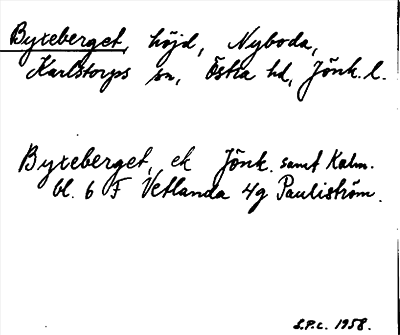 Byxeberget, höjd, Nyboda,
Karlstorps sn, Östra hd, Jönk. l.
Byxeberget, ek Jönk. samt Kalm.
bl. 6 F Vetlanda 4g Pauliström.
S.P.L. 1958.